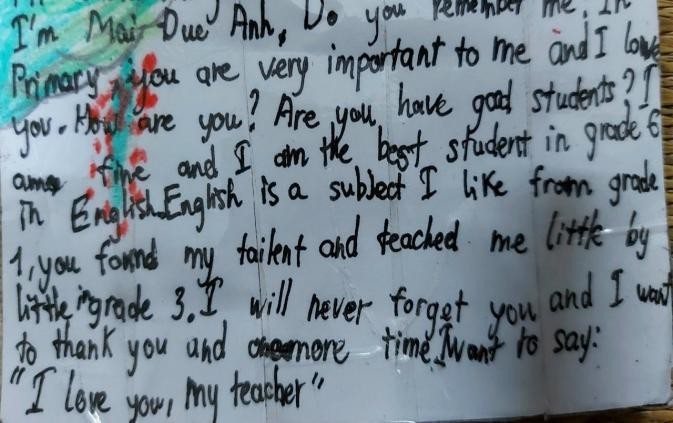 I'm Mai Duc Anh, Do you remember me. In
Primary, you are very important to me and I love
you. How are you? Are you have good students? I
am fine and I am the best student in grade 6
in English. English is a subject I like from grade
1, you found my tailent and teached me little by
little in grade 3. I will never forget you and I want
to thank you and more time I want to say:
"I love you, my teacher"